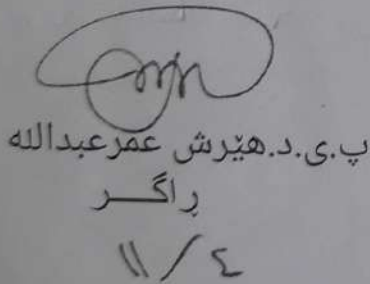 پ.ی.د.هێرش عمرعبدالله
ڕاگــــر
١١/٤